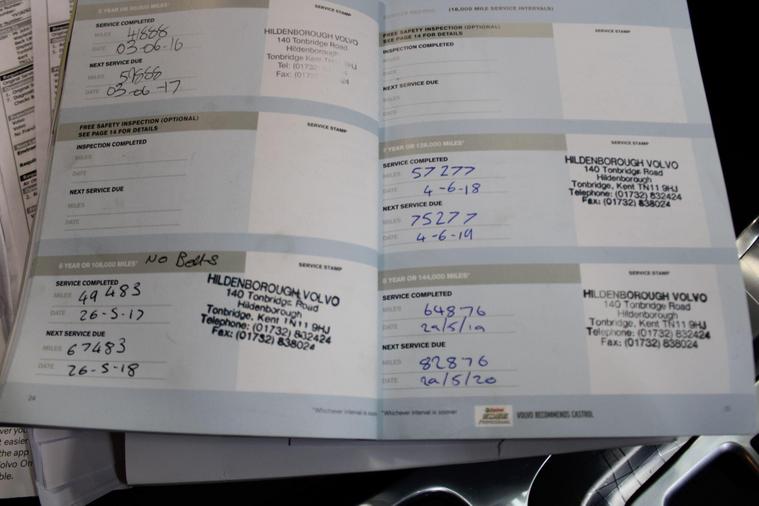 5 YEAR OR 90,000 MILES*
SERVICE STAMP
SERVICE COMPLETED
MILES 41888
DATE 03-06-16
NEXT SERVICE DUE
MILES 59888
DATE 03-06-17
HILDENBOROUGH VOLVO
140 Tonbridge Road
Hildenborough
Tonbridge Kent
Tel: (01732)
Fax: (01732)
FREE SAFETY INSPECTION (OPTIONAL)
SEE PAGE 14 FOR DETAILS
SERVICE STAMP
INSPECTION COMPLETED
MILES
DATE
NEXT SERVICE DUE
MILES
DATE
6 YEAR OR 108,000 MILES* No Belts
SERVICE STAMP
SERVICE COMPLETED
MILES 49483
DATE 26-5-17
NEXT SERVICE DUE
MILES 67483
DATE 26-5-18
HILDENBOROUGH VOLVO
140 Tonbridge Road
Hildenborough
Tonbridge, Kent TN11 9HJ
Telephone: (01732) 832424
Fax: (01732) 838024
24
*Whichever interval is sooner
(18,000 MILE SERVICE INTERVALS)
FREE SAFETY INSPECTION (OPTIONAL)
SEE PAGE 14 FOR DETAILS
SERVICE STAMP
INSPECTION COMPLETED
MILES
DATE
NEXT SERVICE DUE
MILES
DATE
7 YEAR OR 126,000 MILES*
SERVICE STAMP
SERVICE COMPLETED
MILES 57277
DATE 4-6-18
NEXT SERVICE DUE
MILES 75277
DATE 4-6-19
HILDENBOROUGH VOLVO
140 Tonbridge Road
Hildenborough
Tonbridge, Kent TN11 9HJ
Telephone: (01732) 832424
Fax: (01732) 838024
8 YEAR OR 144,000 MILES*
SERVICE STAMP
SERVICE COMPLETED
MILES 64876
DATE 29/5/19
NEXT SERVICE DUE
MILES 82876
DATE 29/5/20
HILDENBOROUGH VOLVO
140 Tonbridge Road
Hildenborough
Tonbridge, Kent TN11 9HJ
Telephone: (01732) 832424
Fax: (01732) 838024
*Whichever interval is sooner
Castrol
EDGE
PROFESSIONAL
VOLVO RECOMMENDS CASTROL